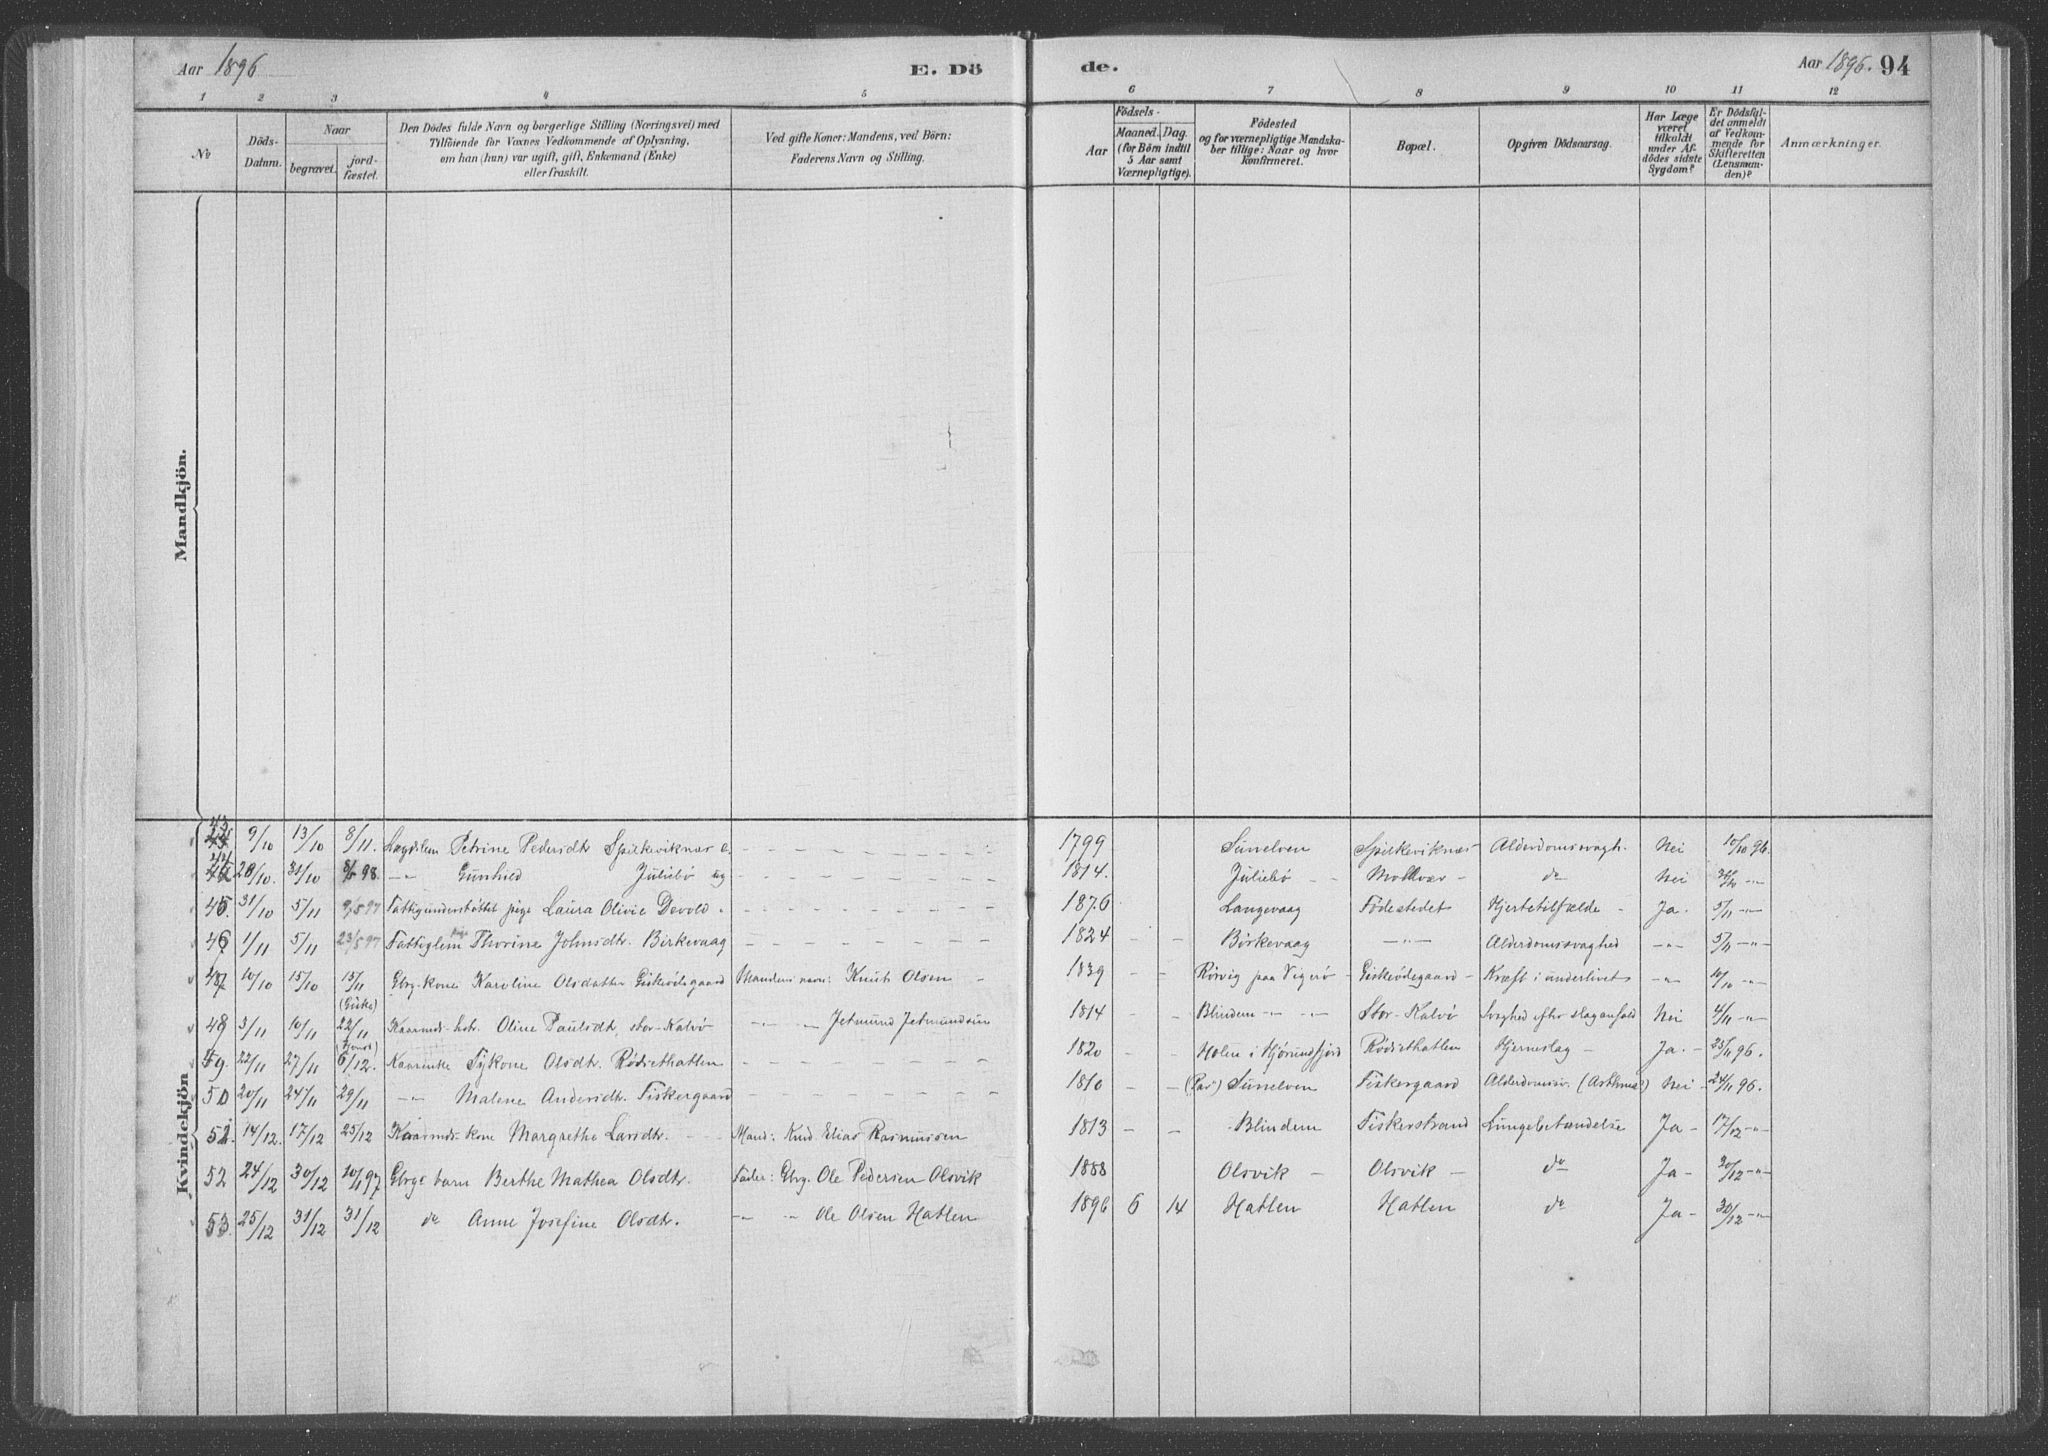 Aar 1896 E. Dö de. Aar 1896. 94
1 2 3 4 5 6 7 8 9 10 11 12
No
Döds-Datum.
Naar
begravet.
jord-fæstet.
Den Dödes fulde Navn og borgerlige Stilling (Næringsvei) med
Tilföiende for Voxnes Vedkommende af Oplysning,
om han (hun) var ugift, gift, Enkemand (Enke)
eller fraskilt.
Ved gifte Koner: Mandens, ved Börn:
Faderens Navn og Stilling.
Aar
Födsels-
Maaned. Dag.
(for Börn indtil
5 Aar samt
Værnepligtige).
Födested
og for værnepligtige Mandska-
ber tillige: Naar og hvor
konfirmeret.
Bopæl.
Opgiven Dödsaarsag.
Har Læge
været
tilkaldt
under Af-
dödes sidste
Sygdom?
Er Dödsfal-
det anmeldt
af Vedkom-
mende for
Skifteretten
(Lensman-
den)?
Anmærkninger.
Mandkjön.
Kvindekjön
43 9/10 13/10 8/11. Lægdslem Petrine Pedersdtr Spilkeviknæs e. 1799 Sunelven Spilkeviknæs Alderdomssvagh. Nei 10/10 96.
44 28/10. 31/10 98. -"- Gunhild Juliebö ug 1814. Juliebö Alderdomssvagh do Nei -"-
45. 31/10 5/11 97 Fattigunderstöttet pige Laura Olivie Devold. 1876 Langevaag Födestedet Hjertetilfælde Ja. 5/11 -"-
46 1/11 5/11 23/5 97 Fattiglem pige Thorine Johnsdtr. Birkevaag 1824 - - Börkevaag -"- Alderdomssvaghed -"- 5/11 -"-
47 10/10 15/10 15/11 (Giske) Gbrg-kone Karoline Olsdatter Giskeödegaard Mandens navn: Knut Olsen 1839 - - Rörvig paa Vigerö Giskeödegaard Kræft i underlivet -"- 10/10 -"-
48 3/11 10/11 22/11 Kaarmds. kst. Oline Paulsdtr. Stor-Kalvö -"- -"- Jetmund Jetmundsen 1814 - - Blindem -"- Stor-Kalvö Svaghed efter slaganfald Nei 4/11 -"-
49. 22/11 27/11 6/12. Kaarenke Sykone Olsdtr. Rödsethatlen 1820 - - Holen i Hjörundfjord Rödsethatlen Hjerneslag Ja. 25/11 96.
50 20/11 24/11 29/11 -"- Malene Andersdtr. Fiskergaard 1810 - - Sunelven Fiskergaard Alderdomssv. (Asthma) Nei 24/11 96.
51. 14/12. 17/12 25/12 Kaarmds-kone Margrethe Larsdtr. Mand: Knud Elias Rasmussen 1813 - - Blindem Fiskerstrand Lungebetændelse Ja 17/12 -"-
52 24/12 30/12 10/1 97 Gbrgs barn Berthe Mathea Olsdtr. Fader: Gbrg. Ole Pedersen Olsvik 1888 Olsvik Olsvik do Ja 30/12 -"-
53. 25/12 31/12 31/12 do Anne Josefine Olsdtr. -"- -"- Ole Olsen Hatlen 1896 6 14 Hatlen Hatlen do Ja 30/12 -"-